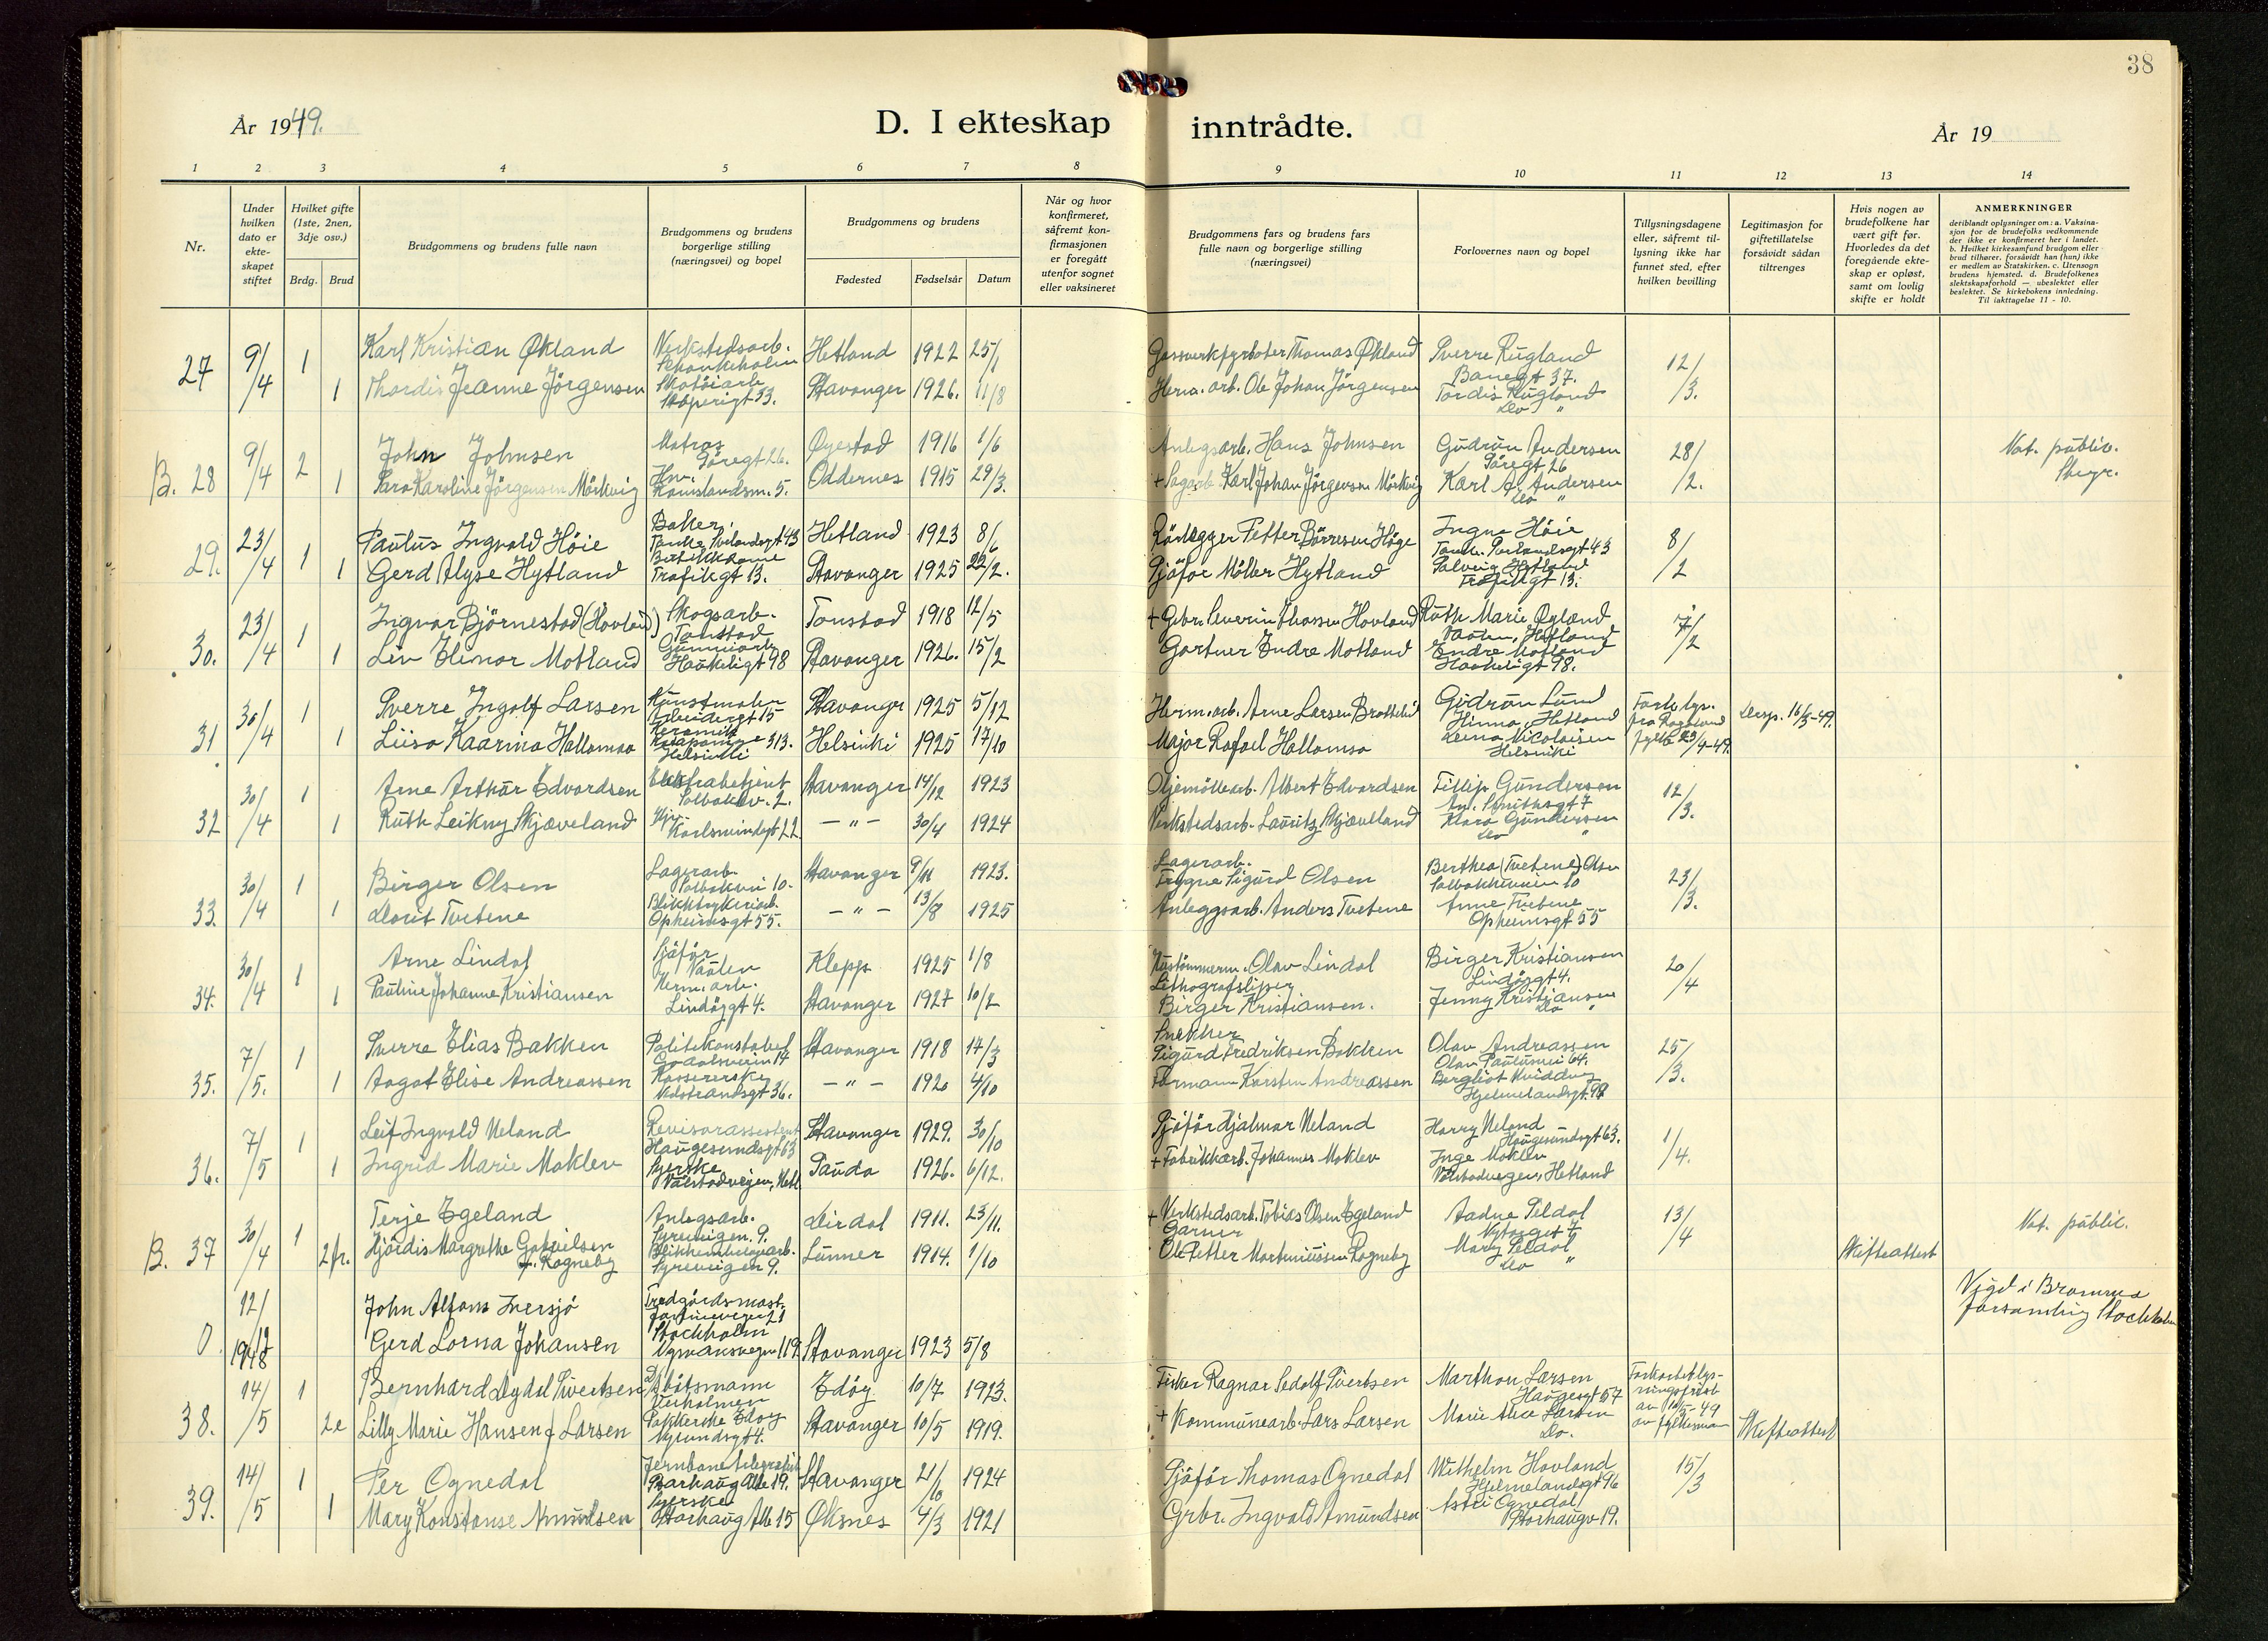 38
År 1949.
D. I ekteskap inntrådte.
År 19
1 2 3 4 5 6 7 8 9 10 11 12 13 14
Nr.
Under hvilken dato er ekte-skapet stiftet
Hvilket gifte (1ste, 2nen, 3dje osv.)
Brdg. Brud
Brudgommens og brudens fulle navn
Brudgommens og brudens borgerlige stilling (næringsvei) og bopel
Brudgommens og brudens
Fødested Fødselsår Datum
Når og hvor konfirmeret, såfremt kon-firmasjonen er foregått utenfor sognet eller vaksineret
Brudgommens fars og brudens fars fulle navn og borgerlige stilling (næringsvei)
Forlovernes navn og bopel
Tillysningsdagene eller, såfremt til-lysning ikke har funnet sted, efter hvilken bevilling
Legitimasjon for giftetillatelse forsåvidt sådan tiltrenges
Hvis nogen av brudefolkene har vært gift før. Hvorledes da det foregående ekte-skap er opløst, samt om lovlig skifte er holdt
ANMERKNINGER
deriblandt oplysninger om: a. Vaksina-sjon for de brudefolks vedkommende der ikke er konfirmeret her i landet. b. Hvilket kirkesamfund brudgom eller brud tilhører, forsåvidt han (hun) ikke er medlem av Statskirken. c. Utensogn brudens hjemsted. d. Brudefolkenes slektskapsforhold — ubeslektet eller beslektet. Se kirkebokens innledning. Til iakttagelse 11 - 10.
27 9/4 1 Karl Kristian Økland Verkstedsarb. Hetland 1922 25/1 Gassverkfyrbøter Thomas Økland Sverre Rugland Banegt 37. 12/3.
1 Thordis Jeanne Jörgensen Skotöiarb. Støperigt 33. Stavanger 1926. 11/8 Herm. arb. Ole Johan Jörgensen Tordis Rugland do "
B. 28 9/4 2 John Johnsen Matros Pöregt 26. Øyestad 1916 1/6 Anlegsarb. Hans Johnsen Gudrun Andersen Pöregt 26 28/2. Vat. public. Styr.
1 Sara Karoline Jörgensen Mörkvig Hm. 5. Oddernes 1915 29/3. + Sagarb. Karl Johan Jörgensen Mörkvig Karl A. Andersen do "
29. 23/4 1 Paulus Ingvald Höie Baker. Hetland 1923 8/6 Rörlegger Petter Börresen Höye Ingna Höie 8/2
1 Gerd Alyse Hytland Butikkdame Trafikgt 13. Stavanger 1925 22/2. Sjåför Möller Hytland Solveig Hytland Trafikgt 13.
30. 23/4 1 Ingvar Björnestad (Hovland) Skogsarb. Tonstad Tonstad 1918 12/5 + Gbr. Severin Thorsen Hovland Ruth Marie Øgland Hetland 7/2
1 Liv Elinor Motland Gummiarb. Haukeligt 98 Stavanger 1926. 15/2 Gartner Endre Motland Endre Motland Haukeligt 98.
31. 30/4 1 Sverre Ingolf Larsen Kunstmaler Arbeidergt 15 Stavanger 1925 5/12 Herm. arb. Arne Larsen Brattebö Gudrun Lund Hinna, Hetland Fork. lys. fra Rogaland fylke 23/4-49. Disp. 16/3-49.
1 Liisa Kaarina Hallamaa Keramik 313. Helsinki Helsinki 1925 17/10 Major Rafael Hallamaa Nicolaisen Helsinki
32 30/4 1 Arne Arthur Edvardsen Ekstrabetjent Solbakkv. 2. Stavanger 14/12 1923 Oljemöllearb. Albert Edvardsen Fillip Gundersen 12/3.
1 Ruth Leikny Skjæveland Hjv. Karlsminnegt 22 — " — 30/4 1924 Verkstedsarb. Lauritz Skjæveland Klara Gundersen do "
33. 30/4 1 Birger Olsen Lagerarb. Solbakkvei 10. Stavanger 9/11 1923. Lagerarb. Trygve Sigurd Olsen Berthea (Tvetene) Olsen Solbakkveien 10 23/3.
1 Dorit Tvetene Blikktrykkeriarb. Opheimsgt 55. — " — 13/8 1925 Anleggsarb. Anders Tvetene Anne Tvetene Opheimsgt 55
34. 30/4 1 Arne Lindal Sjåför Vaulen Klepp 1925 1/8 Olav Lindal Birger Kristiansen Lindöygt 4. 20/4
1 Pauline Johanne Kristiansen Herm. arb. Lindöygt 4. Stavanger 1927 10/2 Lithografsliper Birger Kristiansen. Jenny Kristiansen do "
35. 7/5. 1 Sverre Elias Bakken Politikonstabel Godalsveien 14 Stavanger 1918 14/3 Snekker Sigurd Fredriksen Bakken Olav Andreassen Olav Paulsvei 64. 25/3.
1 Aagot Elise Andreassen Kassererske Vidstrandsgt 36. — " — 1920 4/10 Formann Karsten Andreassen Bergliot Kviddvig Hjelmelandsgt.
36. 7/5 1 Leif Ingvald Ueland Revisorassistent Haugesundsgt 63 Stavanger 1929. 30/10 Sjåför Hjalmar Ueland Harry Ueland Haugesundsgt 63. 1/4.
1 Ingrid Marie Moklev Syerske Hetl. Sauda 1926. 6/12. + Fabrikkarb. Johannes Moklev Inge Moklev Hetland
B. 37 30/4 1 Terje Egeland Anlegsarb. Syreveigen. 9. Dirdal 1911. 23/11. + Verkstedsarb. Tobias Olsen Egeland Aadne Seldal 13/4 Vat. public.
2 fr. Hjördis Margrethe Gabrielsen f. Rogneby Syreveigen 9. Lunner 1914. 1/10 Garver Ole Petter Martiniussen Rogneby Mary Seldal do " Skifteattest
0. 12/12 1948 John Alfons Inersjö Tredgårdsmast. Stockholm Vigd i Bromma forsamling Stockholm
Gerd Lorna Johansen 119 Stavanger 1923 5/8
38. 14/5 1 Bernhard Lydel Sivertsen båtsmann Edöy 10/7 1923. Fisker Ragnar Sedolf Sivertsen Marthon Larsen Haugesgt 57 Forkortet lys-ningsfrist av 10/5-49 av fylkesmann
2e Lilly Marie Hansen f Larsen Pakkerske Edöy Nysundsgt 4. Stavanger 10/5 1919. + Kommunearb. Lars Larsen Marie Alice Larsen Do. Skifteattest
39. 14/5 1 Per Ognedal Jernbanetelegrafist Storhaug Alle 19. Stavanger 21/10 1924 Sjåför Thomas Ognedal Wilhelm Hovland Hjelmelandsgt 96 15/3
1 Mary Konstanse Amundsen Syerske Storhaug Alle 15 Øksnes 4/3 1921 Grbr. Ingvald Amundsen Astri Ognedal Storhaugv 19.